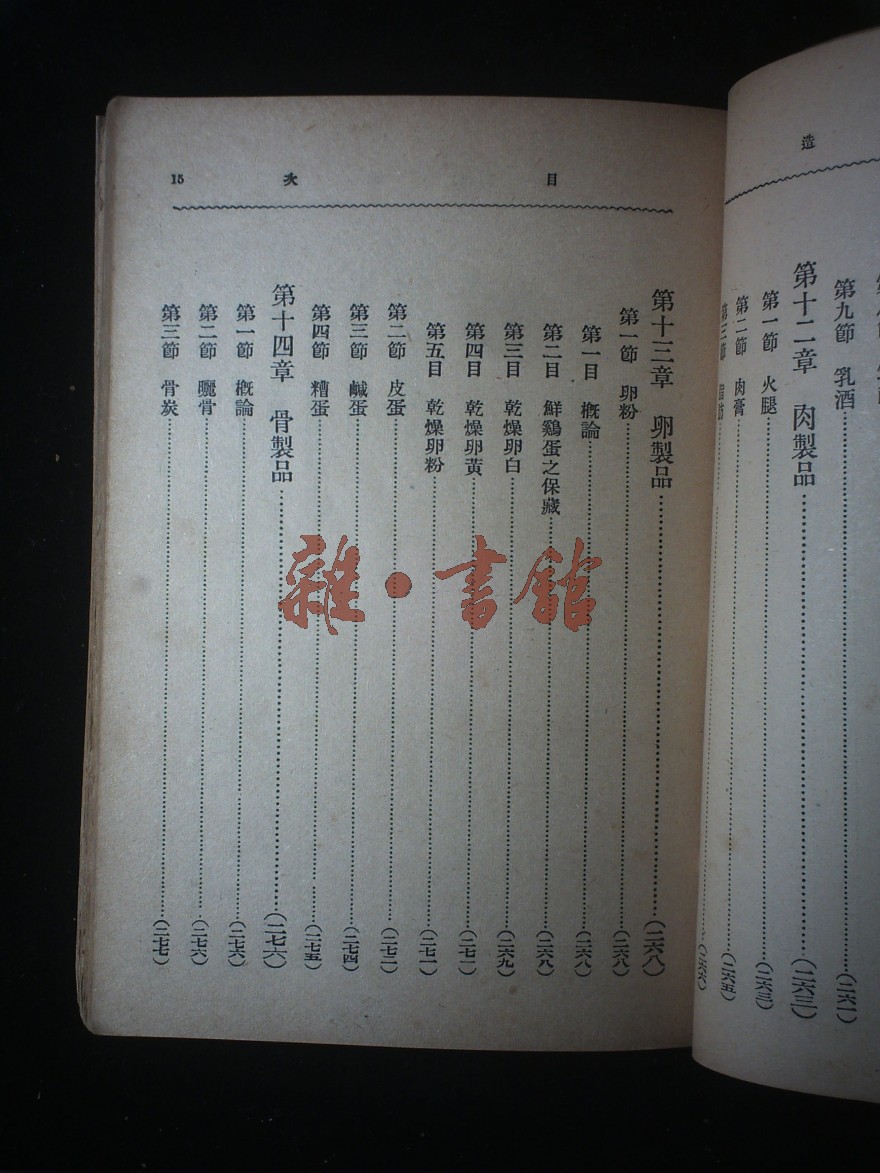 造
第九節　乳酒……(二六一)
第十二章　肉製品……(二六三)
第一節　火腿……(二六三)
第二節　肉膏……(二六五)
第三節
目　次　15
第十三章　卵製品……(二六八)
第一節　卵粉……(二六八)
第一目　概論……(二六八)
第二目　鮮鷄蛋之保藏……(二六八)
第三目　乾燥卵白……(二六九)
第四目　乾燥卵黃……(二七一)
第五目　乾燥卵粉……(二七一)
第二節　皮蛋……(二七二)
第三節　鹹蛋……(二七四)
第四節　糟蛋……(二七五)
第十四章　骨製品……(二七六)
第一節　概論……(二七六)
第二節　曬骨……(二七六)
第三節　骨炭……(二七七)
雜·書館